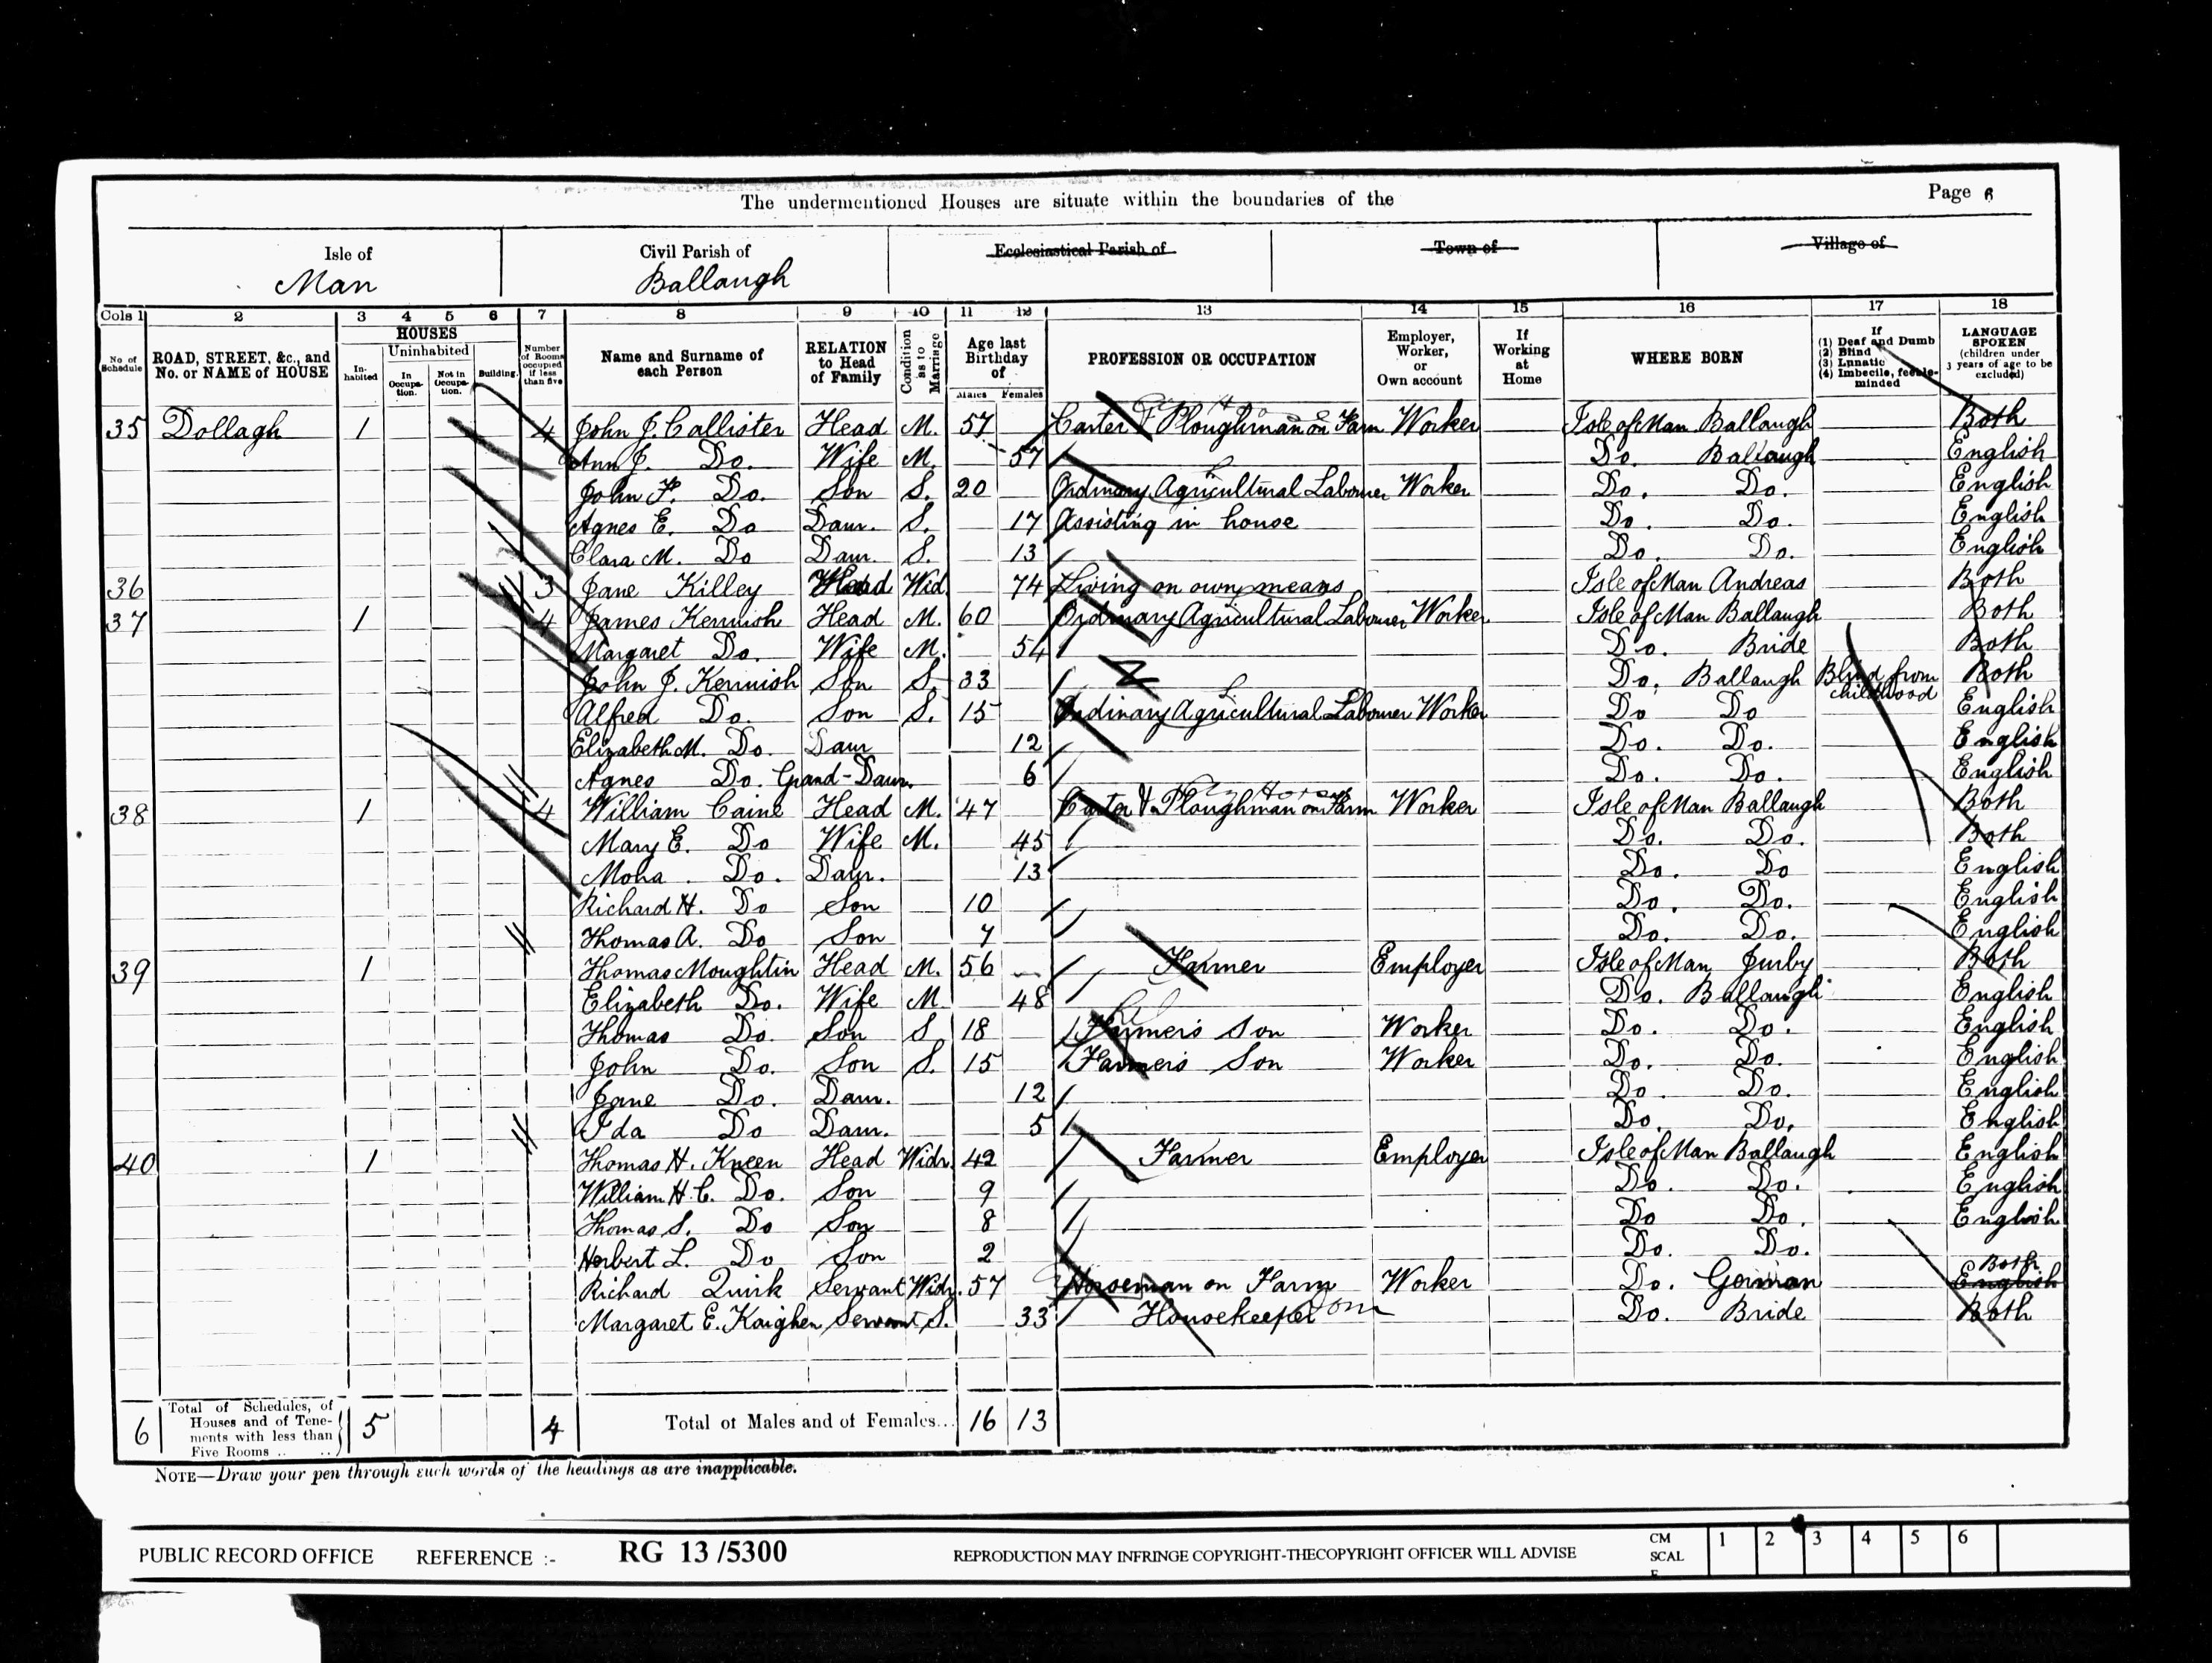 The undermentioned Houses are situate within the boundaries of the
Page 6
Isle of Man
Civil Parish of Ballaugh
Ecclesiastical Parish of
Town of
Village of
Cols 1 2 3 4 5 6 7 8 9 10 11 12 13 14 15 16 17 18
No of Schedule
ROAD, STREET, &c., and No. or NAME of HOUSE
HOUSES
Inhabited
Uninhabited
In Occupation.
Not in Occupation.
Building.
Number of Rooms occupied if less than five
Name and Surname of each Person
RELATION to Head of Family
Condition as to Marriage
Age last Birthday of
Males Females
PROFESSION OR OCCUPATION
Employer, Worker, or Own account
If Working at Home
WHERE BORN
If (1) Deaf and Dumb (2) Blind (3) Lunatic (4) Imbecile, feeble-minded
LANGUAGE SPOKEN (children under 3 years of age to be excluded)
35 Dollagh 1 4 John J. Callister Head M. 57 Carter & Ploughman on Farm Worker Isle of Man Ballaugh Both
Ann J. Do. Wife M. 57 Do. Ballaugh English
John P. Do. Son S. 20 Ordinary Agricultural Labourer Worker Do. Do. English
Agnes E. Do Daur. S. 17 Assisting in house Do. Do. English
Clara M. Do Daur. S. 13 Do. Do. English
36 3 Jane Killey Head Wid. 74 Living on own means Isle of Man Andreas Both
37 1 4 James Kennish Head M. 60 Ordinary Agricultural Labourer Worker Isle of Man Ballaugh Both
Margaret Do. Wife M. 54 Do. Bride Both
John J. Kennish Son S. 33 Do. Ballaugh Blind from childhood Both
Alfred Do. Son S. 15 Ordinary Agricultural Labourer Worker Do Do English
Elizabeth M. Do. Daur 12 Do. Do. English
Agnes Do. Grand-Daur. 6 Do. Do. English
38 1 4 William Caine Head M. 47 Carter & Ploughman on Farm Worker Isle of Man Ballaugh Both
Mary E. Do Wife M. 45 Do. Do. Both
Mona Do. Daur. 13 Do. Do English
Richard H. Do Son 10 Do. Do. English
Thomas A. Do Son 7 Do. Do. English
39 1 Thomas Moughtin Head M. 56 Farmer Employer Isle of Man Jurby Both
Elizabeth Do. Wife M. 48 Do. Ballaugh English
Thomas Do. Son S 18 Farmer's Son Worker Do. Do. English
John Do. Son S. 15 Farmer's Son Worker Do. Do. English
Jane Do. Daur. 12 Do. Do. English
Ida Do Daur. 5 Do. Do. English
40 1 Thomas H. Kneen Head Widr. 42 Farmer Employer Isle of Man Ballaugh English
William H. C. Do. Son 9 Do. Do. English
Thomas S. Do Son 8 Do Do. English
Herbert L. Do Son 2 Do. Do.
Richard Quirk Servant Widr. 57 Horseman on Farm Worker Do. German English Both
Margaret E. Kaighen Servant S. 33 Housekeeper Dom Do. Bride Both
6 Total of Schedules, of Houses and of Tenements with less than Five Rooms .. .. 5 4 Total of Males and of Females... 16 13
NOTE—Draw your pen through such words of the headings as are inapplicable.
PUBLIC RECORD OFFICE REFERENCE :- RG 13 /5300 REPRODUCTION MAY INFRINGE COPYRIGHT-THECOPYRIGHT OFFICER WILL ADVISE CM SCALE 1 2 3 4 5 6